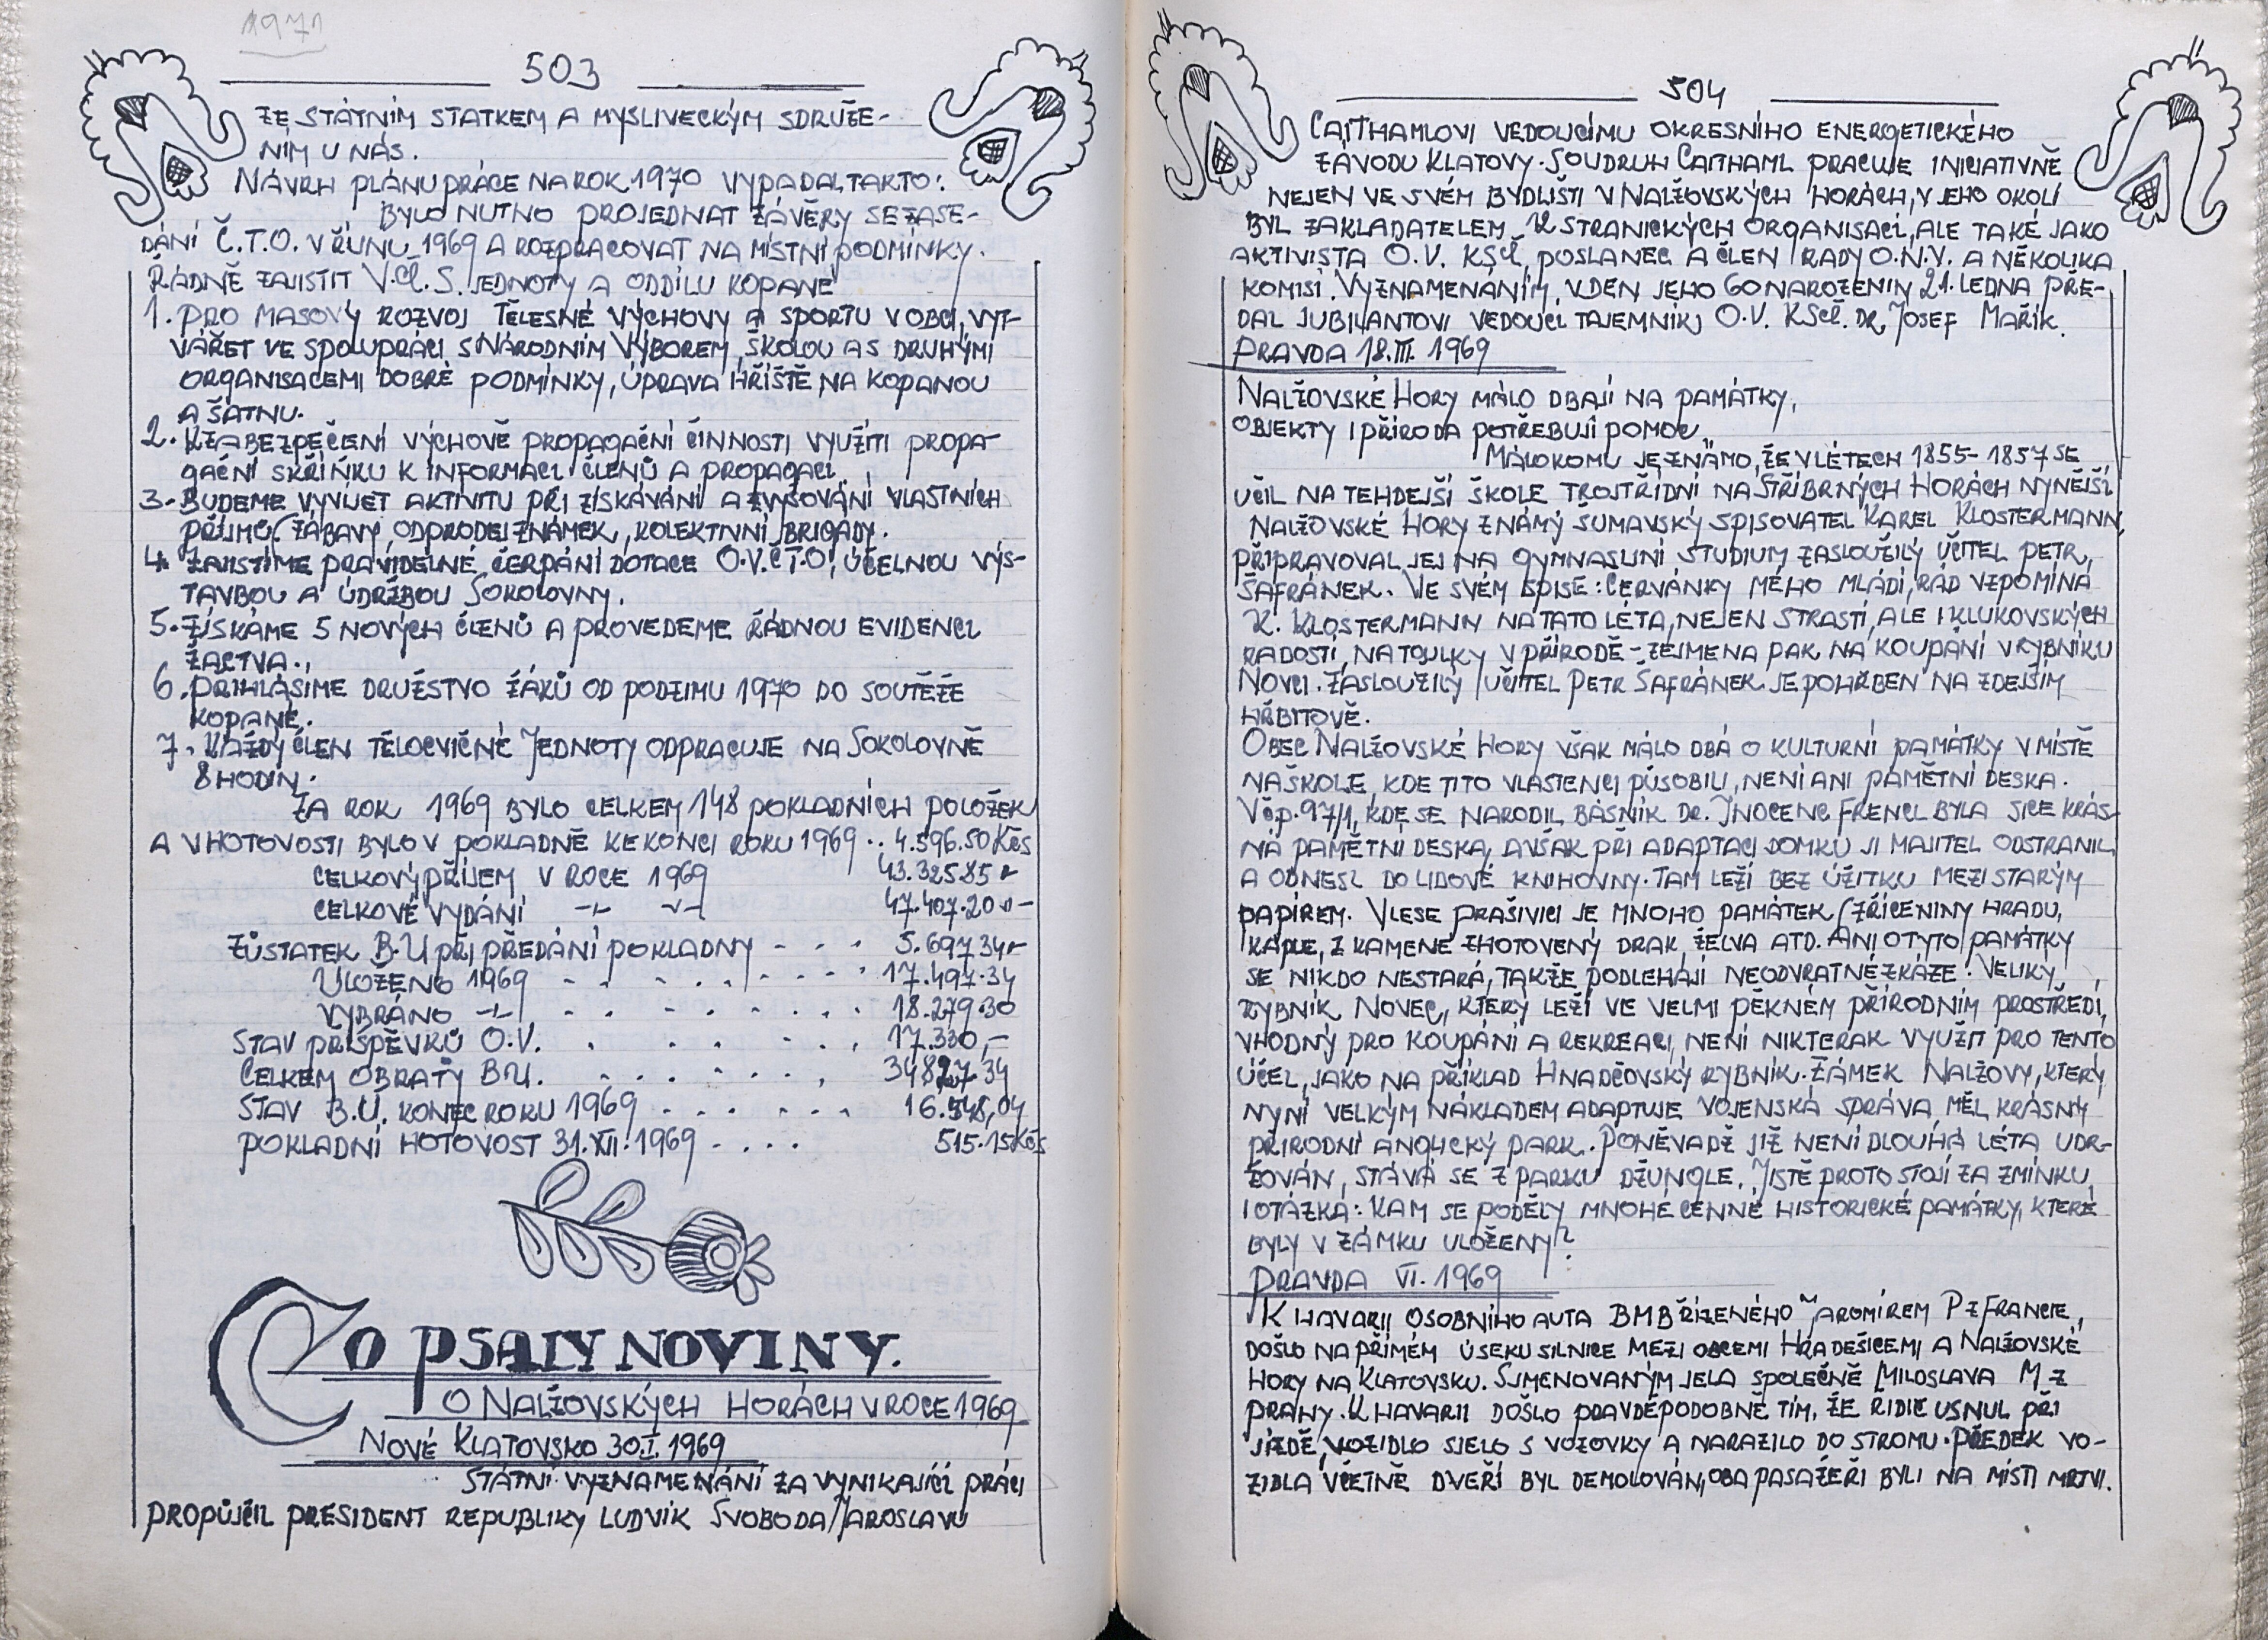 1971
503
ZE STÁTNÍM STATKEM A MYSLIVECKÝM SDRUŽE-
NÍM U NÁS.
NÁVRH PLÁNU PRÁCE NA ROK 1970 VYPADAL TAKTO:
BYLO NUTNO PROJEDNAT ZÁVĚRY SE ZASE-
DÁNÍ Č.T.O. V ŘÍJNU 1969 A ROZPRACOVAT NA MÍSTNÍ PODMÍNKY.
ŘÁDNĚ ZAJISTIT V.Čl.S. JEDNOTY A ODDÍLU KOPANÉ
1. PRO MASOVÝ ROZVOJ TĚLESNÉ VÝCHOVY A SPORTU V OBCI, VYT-
VÁŘET VE SPOLUPRÁCI S NÁRODNÍM VÝBOREM, ŠKOLOU A S DRUHÝMI
ORGANISACEMI DOBRÉ PODMÍNKY, ÚPRAVA HŘIŠTĚ NA KOPANOU
A ŠATNU.
2. K ZABEZPEČENÍ VÝCHOVĚ PROPAGAČNÍ ČINNOSTI VYUŽÍTI PROPA-
GAČNÍ SKŘÍŇKU K INFORMACI ČLENŮ A PROPAGACI.
3. BUDEME VYVÍJET AKTIVITU PŘI ZÍSKÁVÁNÍ A ZVYŠOVÁNÍ VLASTNÍCH
PŘÍJMŮ (ZÁBAVY, ODPRODEJ ZNÁMEK, KOLEKTIVNÍ BRIGÁDY.
4. ZAJISTÍME PRAVIDELNÉ ČERPÁNÍ DOTACE O.V.Č.T.O. ÚČELNOU VÝS-
TAVBOU A ÚDRŽBOU SOKOLOVNY.
5. ZÍSKÁME 5 NOVÝCH ČLENŮ A PROVEDEME ŘÁDNOU EVIDENCI
ŽACTVA.
6. PŘIHLÁSÍME DRUŽSTVO ŽÁKŮ OD PODZIMU 1970 DO SOUTĚŽE
KOPANÉ.
7. KAŽDÝ ČLEN TĚLOCVIČNÉ JEDNOTY ODPRACUJE NA SOKOLOVNĚ
8 HODIN.
ZA ROK 1969 BYLO CELKEM 148 POKLADNÍCH POLOŽEK
A V HOTOVOSTI BYLO V POKLADNĚ KE KONCI ROKU 1969 .. 4.596.50 Kčs
CELKOVÝ PŘÍJEM V ROCE 1969 43.325.85 "
CELKOVÉ VYDÁNÍ -"- -"- 47.407.20 "-
ZŮSTATEK B.U PŘI PŘEDÁNÍ POKLADNY - - - 5.697 34 "
ULOŽENO 1969 - - - - - - - - 17.497.34
VYBRÁNO -"- - - - - - - - 18.279.30
STAV PŘÍSPĚVKŮ O.V. . . . . . . 17.330,-
CELKEM OBRATY B U. . . . . . . 34827.34
STAV B.Ú. KONEC ROKU 1969 . . . . . 16.548,04
POKLADNÍ HOTOVOST 31.XII.1969 - . . . 515.15 Kčs
CO PSALY NOVINY.
O NALŽOVSKÝCH HORÁCH V ROCE 1969
NOVÉ KLATOVSKO 30.I.1969
STÁTNÍ VYZNAMENÁNÍ ZA VYNIKAJÍCÍ PRÁCI
PROPŮJČIL PRESIDENT REPUBLIKY LUDVÍK SVOBODA JAROSLAVU
504
CAITHAMLOVI VEDOUCÍMU OKRESNÍHO ENERGETICKÉHO
ZÁVODU KLATOVY. SOUDRUH CAITHAML PRACUJE INICIATIVNĚ
NEJEN VE SVÉM BYDLIŠTI V NALŽOVSKÝCH HORÁCH, V JEHO OKOLÍ
BYL ZAKLADATELEM STRANICKÝCH ORGANISACÍ, ALE TAKÉ JAKO
AKTIVISTA O.V. KSČ, POSLANEC A ČLEN RADY O.N.V. A NĚKOLIKA
KOMISÍ. VYZNAMENÁNÍM, V DEN JEHO 60 NAROZENIN 21. LEDNA PŘE-
DAL JUBILANTOVI VEDOUCÍ TAJEMNÍK O.V. KSČ. DR. JOSEF MAŘÍK.
PRAVDA 18.III.1969
NALŽOVSKÉ HORY MÁLO DBAJÍ NA PAMÁTKY,
OBJEKTY I PŘÍRODA POTŘEBUJÍ POMOC."
MÁLOKOMU JE ZNÁMO, ŽE V LÉTECH 1855-1857 SE
UČIL NA TEHDEJŠÍ ŠKOLE TROJTŘÍDNÍ NA STŘÍBRNÝCH HORÁCH NYNĚJŠÍ
NALŽOVSKÉ HORY ZNÁMÝ ŠUMAVSKÝ SPISOVATEL KAREL KLOSTERMANN,
PŘIPRAVOVAL JEJ NA GYMNASIJNÍ STUDIUM ZASLOUŽILÝ UČITEL PETR
ŠAFRÁNEK. VE SVÉM SPISE: ČERVÁNKY MÉHO MLÁDÍ, RÁD VZPOMÍNÁ
K. KLOSTERMANN NA TATO LÉTA, NEJEN STRASTÍ, ALE I KLUKOVSKÝCH
RADOSTÍ, NA TOULKY V PŘÍRODĚ - ZEJMENA PAK NA KOUPÁNÍ V RYBNÍKU
NOVCI. ZASLOUŽILÝ UČITEL PETR ŠAFRÁNEK JE POHŘBEN NA ZDEJŠÍM
HŘBITOVĚ.
OBEC NALŽOVSKÉ HORY VŠAK MÁLO DBÁ O KULTURNÍ PAMÁTKY V MÍSTĚ
NA ŠKOLE, KDE TITO VLASTENCI PŮSOBILI, NENÍ ANI PAMĚTNÍ DESKA.
V čp. 97/1, KDE SE NARODIL BÁSNÍK DR. INOCENC FRENCL BYLA SICE KRÁS-
NÁ PAMĚTNÍ DESKA, AVŠAK PŘI ADAPTACI DOMKU JI MAJITEL ODSTRANIL
A ODNESL DO LIDOVÉ KNIHOVNY. TAM LEŽÍ BEZ UŽITKU MEZI STARÝM
PAPÍREM. V LESE PRAŠIVICI JE MNOHO PAMÁTEK (ZŘÍCENINY HRADU,
KAPLE, Z KAMENE ZHOTOVENÝ DRAK ŽELVA ATD. ANI O TYTO PAMÁTKY
SE NIKDO NESTARÁ, TAKŽE PODLEHAJÍ NEODVRATNÉ ZKÁZE. VELIKÝ
RYBNÍK NOVEC, KTERÝ LEŽÍ VE VELMI PĚKNÉM PŘÍRODNÍM PROSTŘEDÍ,
VHODNÝ PRO KOUPÁNÍ A REKREACI, NENÍ NIKTERAK VYUŽIT PRO TENTO
ÚČEL, JAKO NA PŘÍKLAD HNAČOVSKÝ RYBNÍK. ZÁMEK NALŽOVY, KTERÝ
NYNÍ VELKÝM NÁKLADEM ADAPTUJE VOJENSKÁ SPRÁVA MĚL KRÁSNÝ
PŘÍRODNÍ ANGLICKÝ PARK. PONĚVADŽ JIŽ NENÍ DLOUHÁ LÉTA UDR-
ŽOVÁN, STÁVÁ SE Z PARKU DŽUNGLE. JISTĚ PROTO STOJÍ ZA ZMÍNKU
I OTÁZKA: KAM SE PODĚLY MNOHÉ CENNÉ HISTORICKÉ PAMÁTKY, KTERÉ
BYLY V ZÁMKU ULOŽENY?
PRAVDA VI. 1969
K HAVARII OSOBNÍHO AUTA BMB ŘÍZENÉHO JAROMÍREM P Z FRANCIE,
DOŠLO NA PŘÍMÉM ÚSEKU SILNICE MEZI OBCEMI HRADEŠICEMI A NALŽOVSKÉ
HORY NA KLATOVSKU. S JMENOVANÝM JELA SPOLEČNĚ MILOSLAVA M Z
PRAHY. K HAVARII DOŠLO PRAVDĚPODOBNĚ TÍM, ŽE ŘIDIČ USNUL PŘI
JÍZDĚ, VOZIDLO SJELO S VOZOVKY A NARAZILO DO STROMU. PŘEDEK VO-
ZIDLA VČETNĚ DVEŘÍ BYL DEMOLOVÁN, OBA PASAŽÉŘI BYLI NA MÍSTĚ MRTVI.